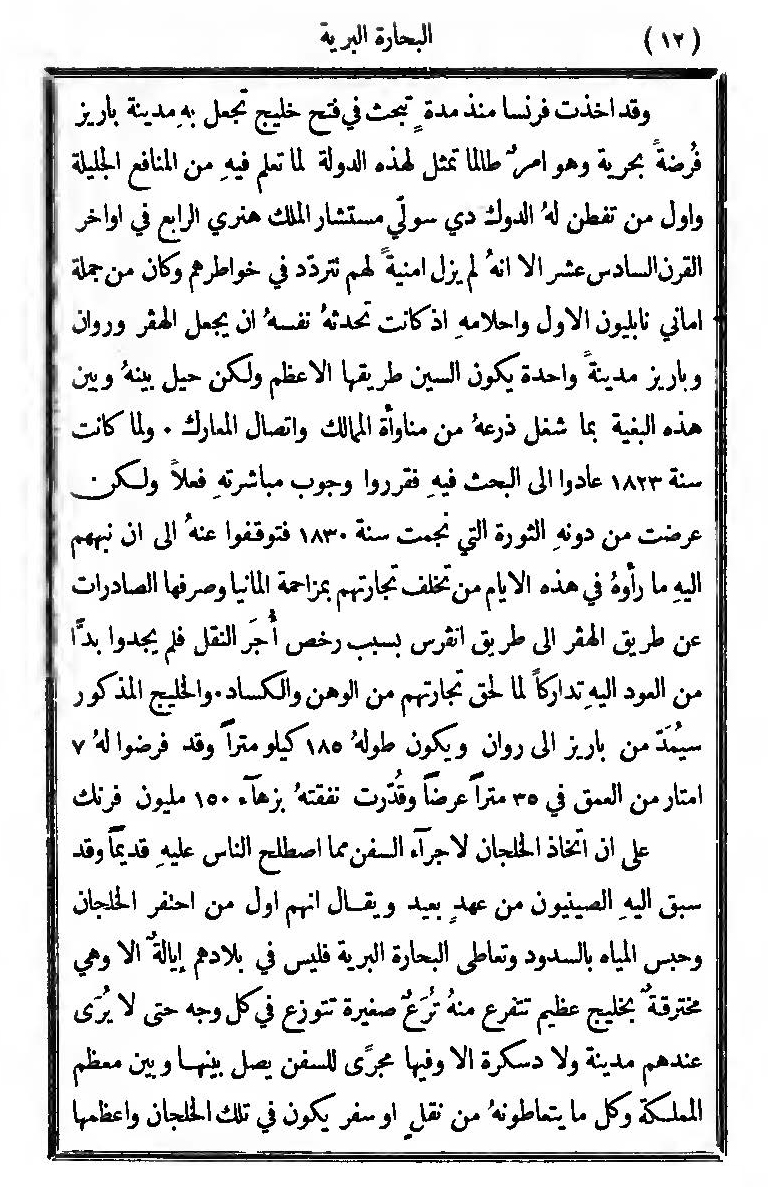 (١٢) البحارة البرية
وقد اخذت فرنسا منذ مدةٍ تبحث في فتح خليج تجعل بهِ مدينة باريز
فُرضةً بحرية وهو امرٌ طالما تمثل لهذه الدولة لما تعلم فيهِ من المنافع الجليلة
واول من تفطن لهُ الدوك دي سولّي مستشار الملك هنري الرابع في اواخر
القرن السادس عشر الا انهُ لم يزل امنيةً لهم تتردّد في خواطرهم وكان من جملة
اماني نابليون الاول واحلامهِ اذ كانت تحدثهُ نفسهُ ان يجعل الهڤر وروان
وباريز مدينةً واحدة يكون السين طريقها الاعظم ولكن حيل بينهُ وبين
هذه البغية بما شغل ذرعهُ من مناوأة الممالك واتصال المعارك ٠ ولما كانت
سنة ١٨٢٣ عادوا الى البحث فيهِ فقرروا وجوب مباشرتهِ فعلاً ولكن
عرضت من دونهِ الثورة التي نجمت سنة ١٨٣٠ فتوقفوا عنهُ الى ان نبههم
اليهِ ما رأوهُ في هذه الايام من تخلف تجارتهم بمزاحمة المانيا وصرفها الصادرات
عن طريق الهڤر الى طريق انڤرس بسبب رخص أُجَر النقل فلم يجدوا بدًّا
من العود اليهِ تداركاً لما لحق تجارتهم من الوهن والكساد ٠ والخليج المذكور
سيُمَدّ من باريز الى روان ويكون طولهُ ١٨٥ كيلو متراً وقد فرضوا لهُ ٧
امتار من العمق في ٣٥ متراً عرضاً وقُدّرت نفقتهُ بزهآء ١٥٠ مليون فرنك
على ان اتخاذ الخلجان لاجرآء السفن مما اصطلح الناس عليهِ قديماً وقد
سبق اليهِ الصينيون من عهدٍ بعيد ويقال انهم اول من احتفر الخلجان
وحبس المياه بالسدود وتعاطى البحارة البرية فليس في بلادهم إيالةٌ الا وهي
مخترقةٌ بخليج عظيم تتفرع منهُ تُرَعٌ صغيرة تتوزع في كل وجه حتى لا يُرَى
عندهم مدينة ولا دسكرة الا وفيها مجرًى للسفن يصل بينها وبين معظم
المملكة وكل ما يتعاطونهُ من نقلٍ او سفر يكون في تلك الخلجان واعظمها